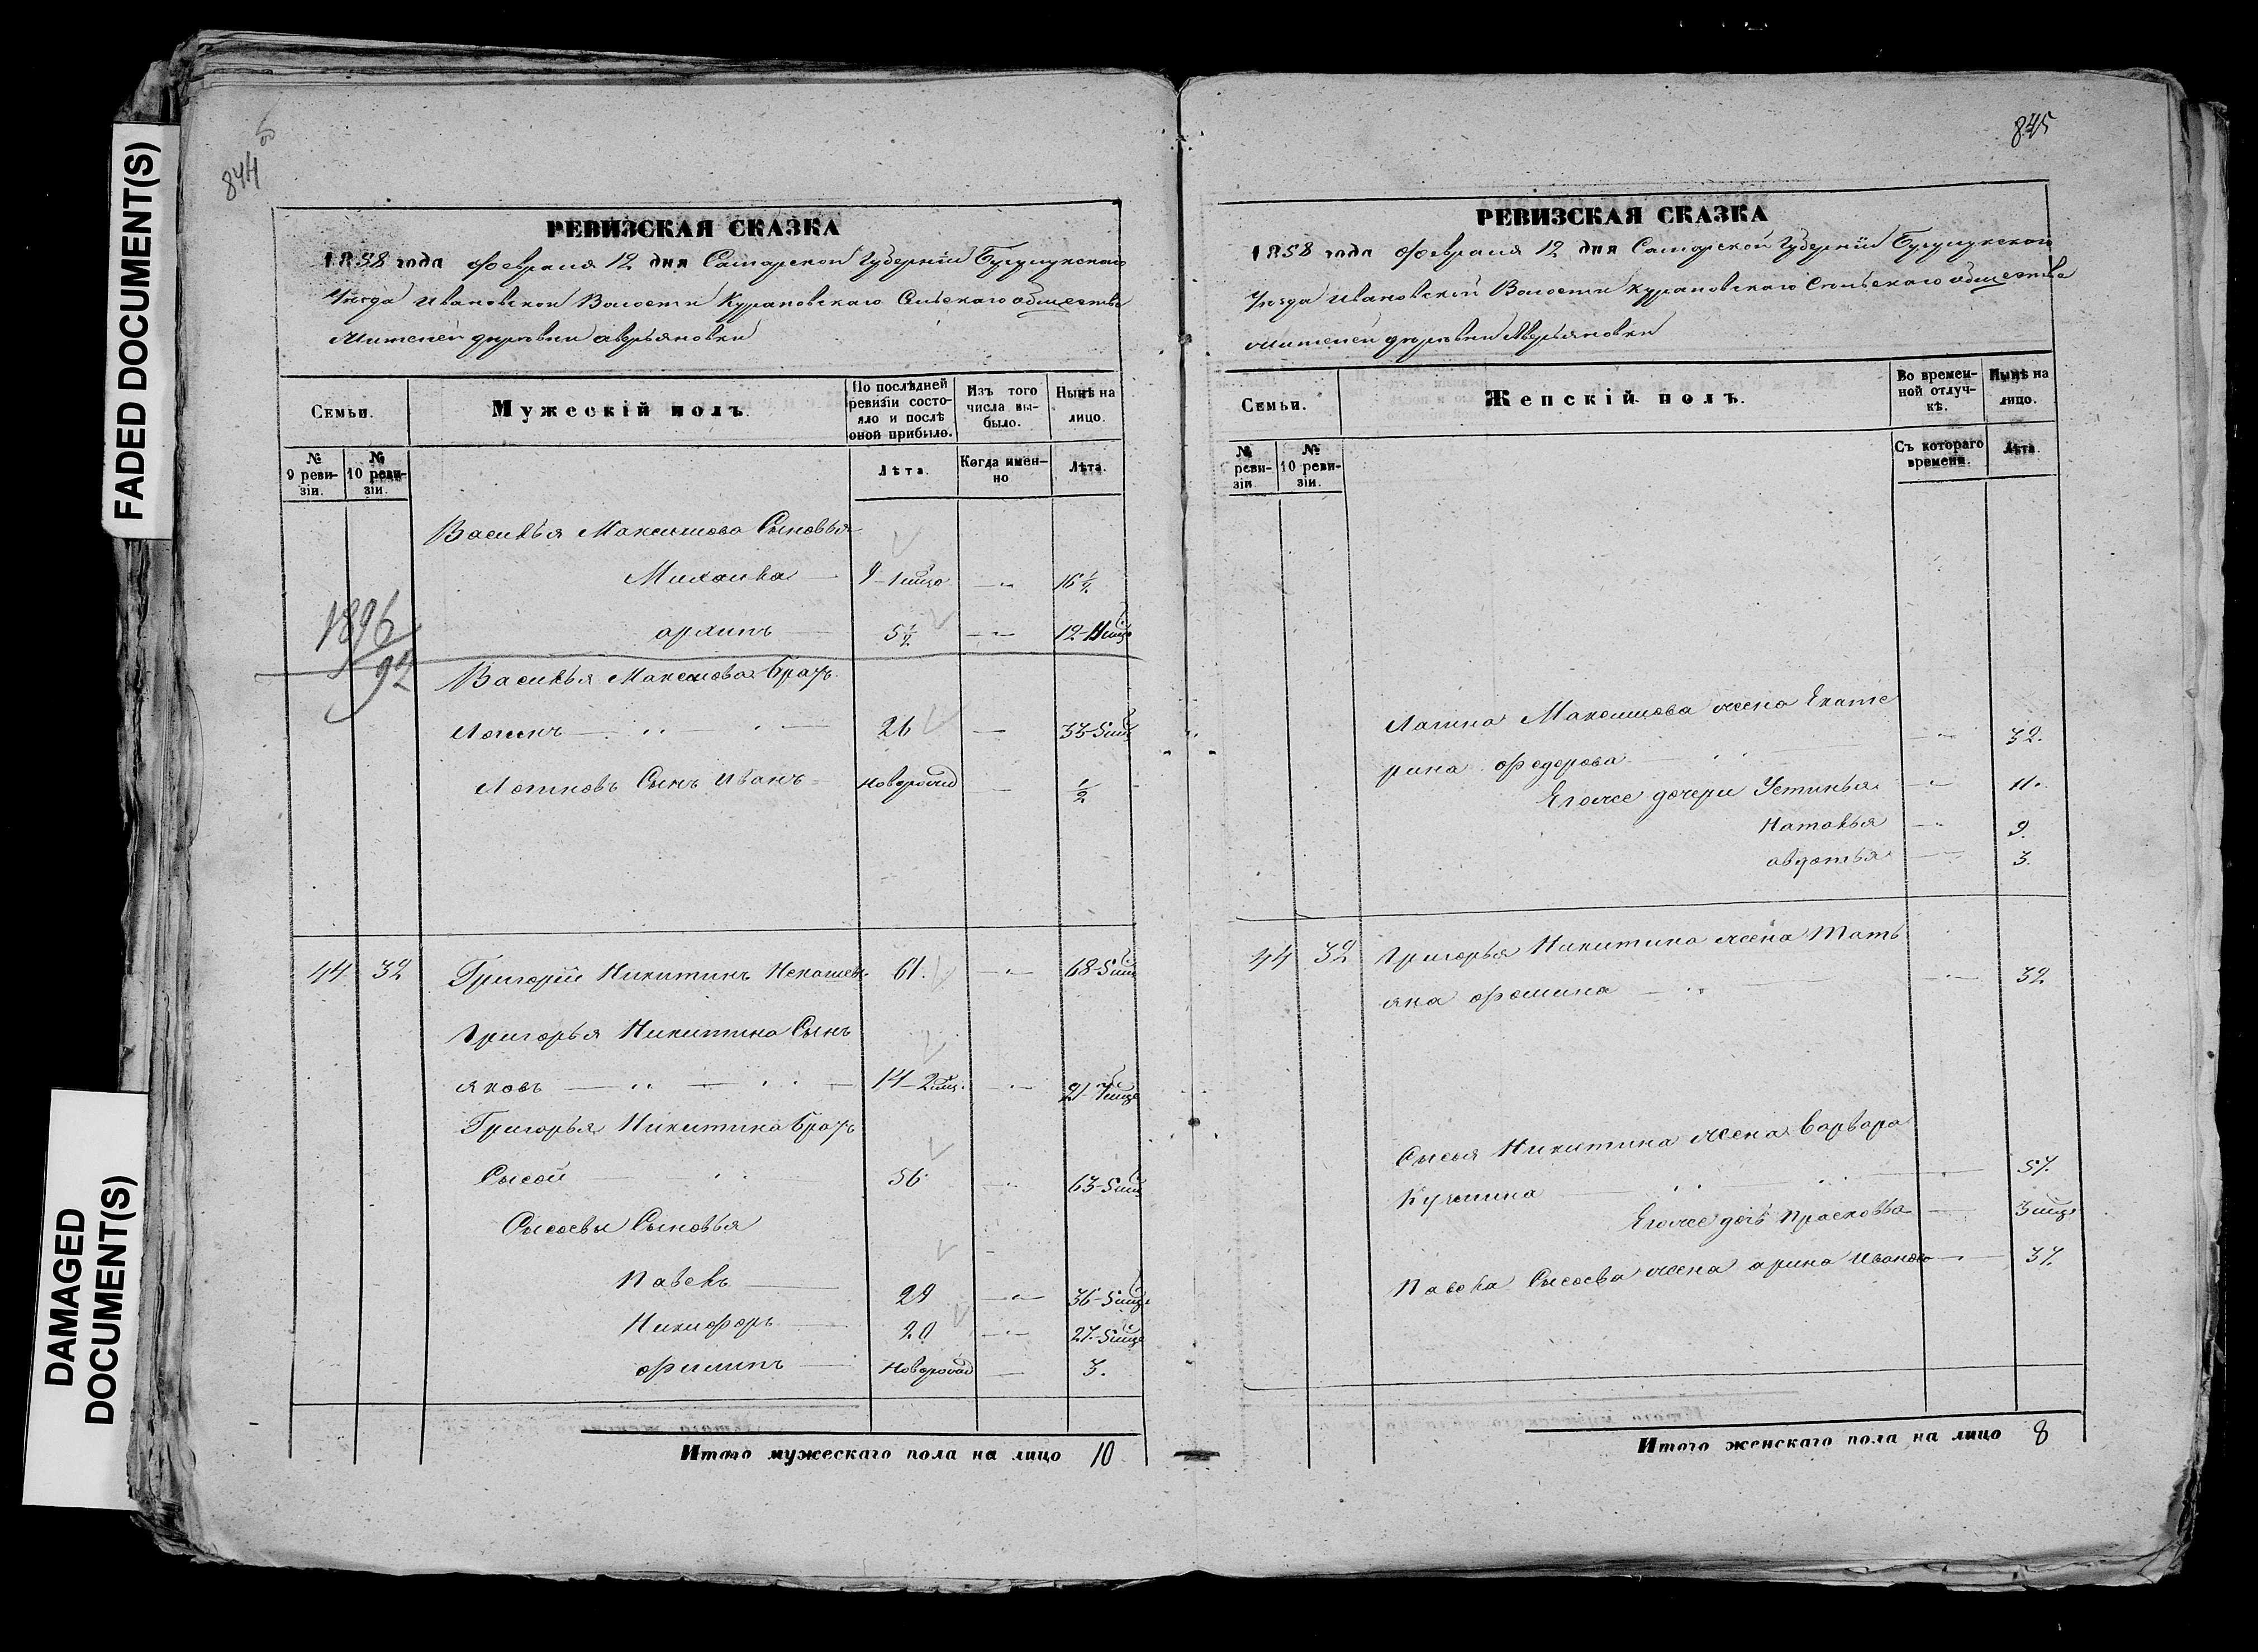 FADED DOCUMENT(S)
DAMAGED
DOCUMENT(S)
844
РЕВИЗСКАЯ СКАЗКА
1858 года февраля 12 дня Самарской Губерніи Бугурусланскаго
Уѣзда Ивановской Волости Курановскаго Сельскаго общества
Жителей деревни аверьяновки
Семьи.
Мужескій полъ.
По послѣдней ревизіи состояло и послѣ оной прибыло.
Изъ того числа выбыло.
Нынѣ на лицо.
№ 9 ревизіи.
№ 10 ревизіи.
Лѣта.
Когда именно
Лѣта.
Василья Максимова Сыновья
Михаила 9-1мца 16½
архипъ 5½ 12-11мце
1896
92
Василья Максимова братъ
Логинъ 26 33-5мц
Логиновъ Сынъ Иванъ новорожд ½
44 32 Григорій Никитинъ 61. 68-5мц
Григорья Никитина Сынъ
яковъ 14-2мц. 21-7мце
Григорья Никитина братъ
Сысой 56 63-5мц
Сысоевы Сыновья
Павелъ 29 36-5мце
Никифоръ 20 27-5мце
филипъ новорожд 3.
Итого мужескаго пола на лицо 10
845
РЕВИЗСКАЯ СКАЗКА
1858 года февраля 12 дня Самарской Губерніи Бугурусланскаго
Уѣзда Ивановской Волости Курановскаго Сельскаго общества
жителей деревни Аверьяновки
Семьи.
Женскій полъ.
Во временной отлучкѣ.
Нынѣ на лицо.
№ ревизіи.
№ 10 ревизіи.
Съ котораго времени.
Лѣта.
Логина Максимова жена Екате
рина федорова 32.
Егоже дочери Устинья 11.
Наталья 9.
авдотья 3.
44 32 Григорья Никитина жена Тать
яна фомина 32
Сысоя Никитина жена Варвара
Кузмина 57.
Егоже дочь Прасковья 3мце
Павела Сысоева жена арина Иванова 37.
Итого женскаго пола на лицо 8